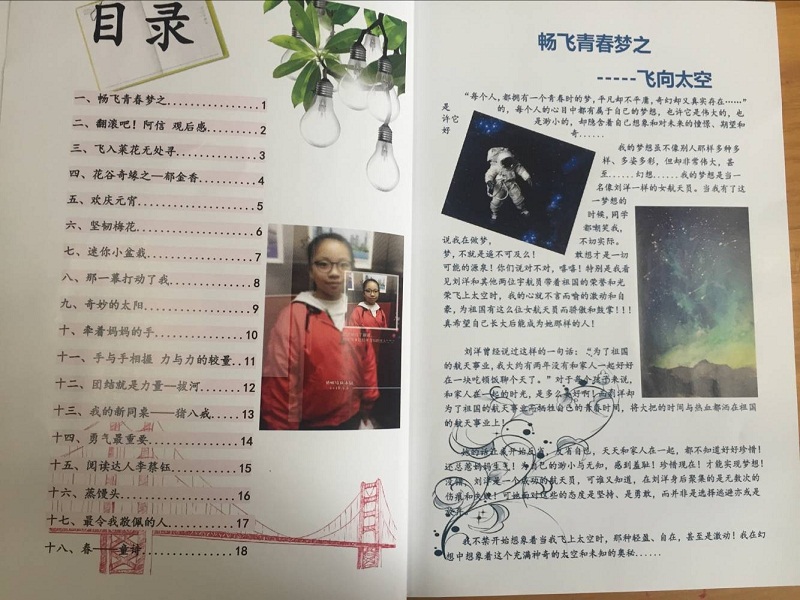 目录
一、畅飞青春梦之..................1
二、翻滚吧！阿信 观后感...........2
三、飞入菜花无处寻...............3
四、花谷奇缘之—郁金香............4
五、欢庆元宵....................5
六、坚韧梅花....................6
七、迷你小盆栽..................7
八、那一幕打动了我...............8
九、奇妙的太阳..................9
十、牵着妈妈的手................10
十一、手与手相握 力与力的较量..11
十二、团结就是力量—拔河.........12
十三、我的新同桌——猪八戒.......13
十四、勇气最重要................14
十五、阅读达人李蔡钰.............15
十六、蒸馒头....................16
十七、最令我敬佩的人.............17
十八、春——童诗.................18
畅飞青春梦之
-----飞向太空
“每个人，都拥有一个青春时的梦，平凡却不平庸，奇幻却又真实存在……”
是的，每个人的心目中都有属于自己的梦想，也许它是伟大的，也
许它是渺小的，却隐含着自己想象和对未来的憧憬、期望和
好奇……
我的梦想虽不像别人那样多种多
样、多姿多彩，但却非常伟大，甚
至……幻想……我的梦想是当一
名像刘洋一样的女航天员。当我有了这
一梦想的
时候，同学
都嘲笑我，
说我在做梦，不切实际。
梦，不就是遥不可及么！敢想才是一切
可能的源泉！你们说对不对，嘻嘻！特别是我看
见刘洋和其他两位宇航员带着祖国的荣誉和光
荣飞上太空时，我的心就不言而喻的激动和自
豪，为祖国有这么位女航天员而骄傲和鼓掌！！！
真希望自己长大后能成为她那样的人！
刘洋曾经说过这样的一句话：“为了祖国
的航天事业，我大约有两年没有和家人一起好好
在一块吃顿饭聊个天了。”对于每个孩子来说，
和家人在一起的时光，是多么美好啊！而刘洋却
为了祖国的航天事业而牺牲自己的青春时间，将大把的时间与热血都洒在祖国
的航天事业上！
她的话让我开始反省，反省自己，天天和家人在一起，都不知道好好珍惜！
还总惹妈妈生气！为自己的渺小与无知，感到羞耻！珍惜现在！才能实现梦想！
没错，刘洋是一个成功的航天员，可谁又知道，在刘洋身后聚集的是无数次的
伤痕和失败！可她面对这些的态度是坚持、是勇敢，而并非是选择逃避亦或是
放弃。
我不禁开始想象着当我飞上太空时，那种轻盈、自在，甚至是激动！我在幻
想中想象着这个充满神奇的太空和未知的奥秘……